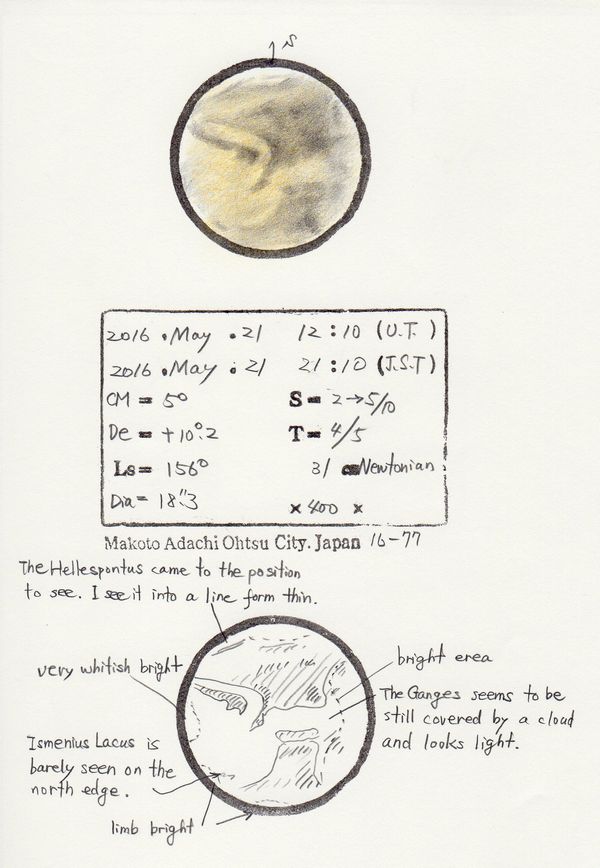 S
2016 . May . 21 12:10 (U.T.)
2016 . May . 21 21:10 (J.S.T)
CM = 5° S = 2→5/10
De = +10°.2 T = 4/5
Ls = 156° 31 cm Newtonian
Dia = 18".3 × 400 ×
Makoto Adachi Ohtsu City. Japan 16-77
The Hellespontus came to the position
to see. I see it into a line form thin.
very whitish bright
bright erea
The Ganges seems to be
still covered by a cloud
and looks light.
Ismenius Lacus is
barely seen on the
north edge.
limb bright